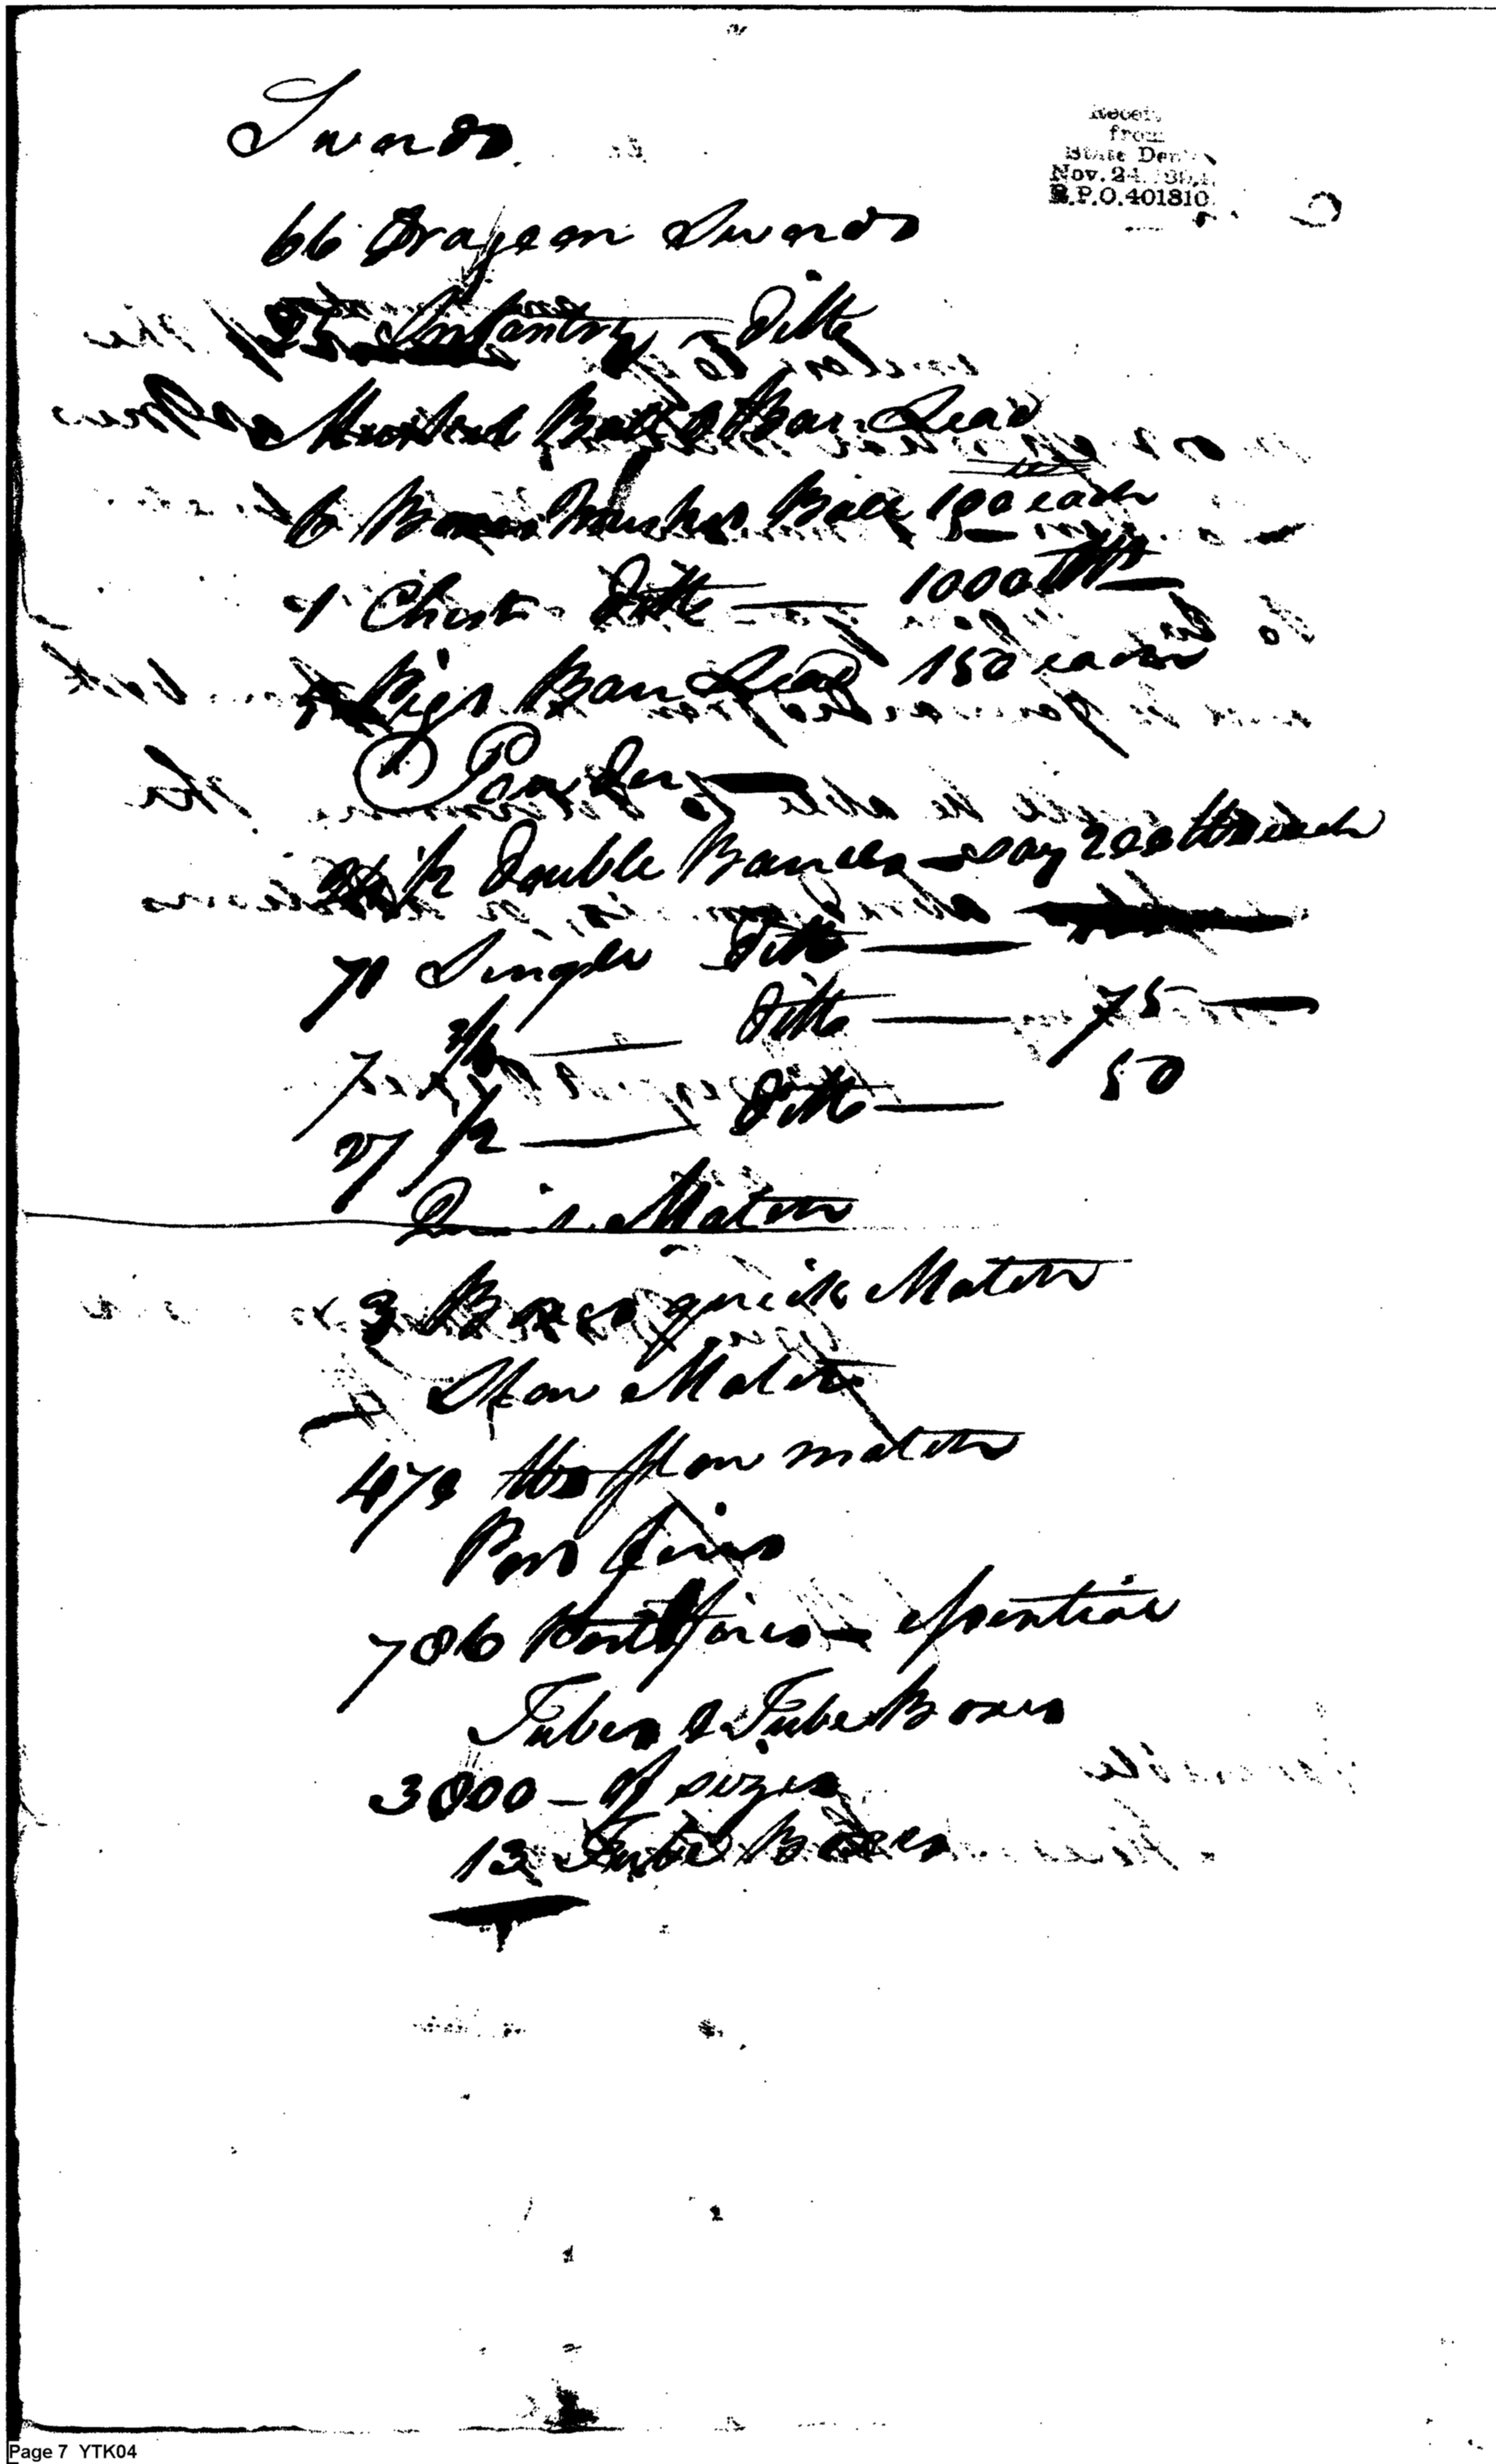 Swords.
Receiv
from
State Dep't
Nov. 24. 189
R.P.O. 401810.
66 Dragoon Swords
125 Infantry – Ditto
Musket Ball & Bar Lead
6 Boxes Musket Ball 100 each
1 Chest Ditto — 1000
Pigs Bar Lead 150 each
Powder —
1/2 Double Barrels – say 200 lbs each
70 Single Ditto —
7 3/4 — Ditto — 75 —
27 1/2 — Ditto — 50
Quick Match
3 Boxes quick Match
Slow Match
470 lbs slow match
Port fires
706 Port fires –
Tubes & Tube Boxes
3000 – of sizes
13 Tube Boxes
Page 7 YTK04